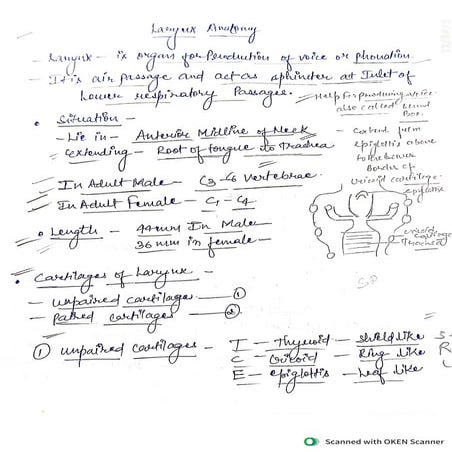 Larynx Anatomy
- Larynx - is organ for Production of voice or phonation
- It is air passage and act as sphincter at Inlet of
Lower respiratory Passages.
Help for producing voice
also called sound
Box.
• Situation -
- Lie in - Anterior Midline of Neck
- extending - Root of tongue to trachea
- extend from
epiglottis above
to the lower
Border of
cricoid cartilage
epiglottis
- In Adult Male - C3-C6 vertebrae.
- In Adult Female - C1 - C4
• Length - 44mm In Male
36 mm in female -
cricoid
cartilage
Trachea
• Cartilages of Larynx -
- unpaired cartilages - ①
- Paired cartilages - ②
① unpaired cartilages - T - Thyroid - shield like S
C - Cricoid - Ring like R
E - epiglottis - leaf like L
Scanned with OKEN Scanner